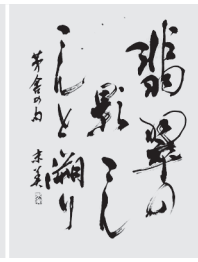 翡翠の
影こん
こんと溯り
茅舎の句